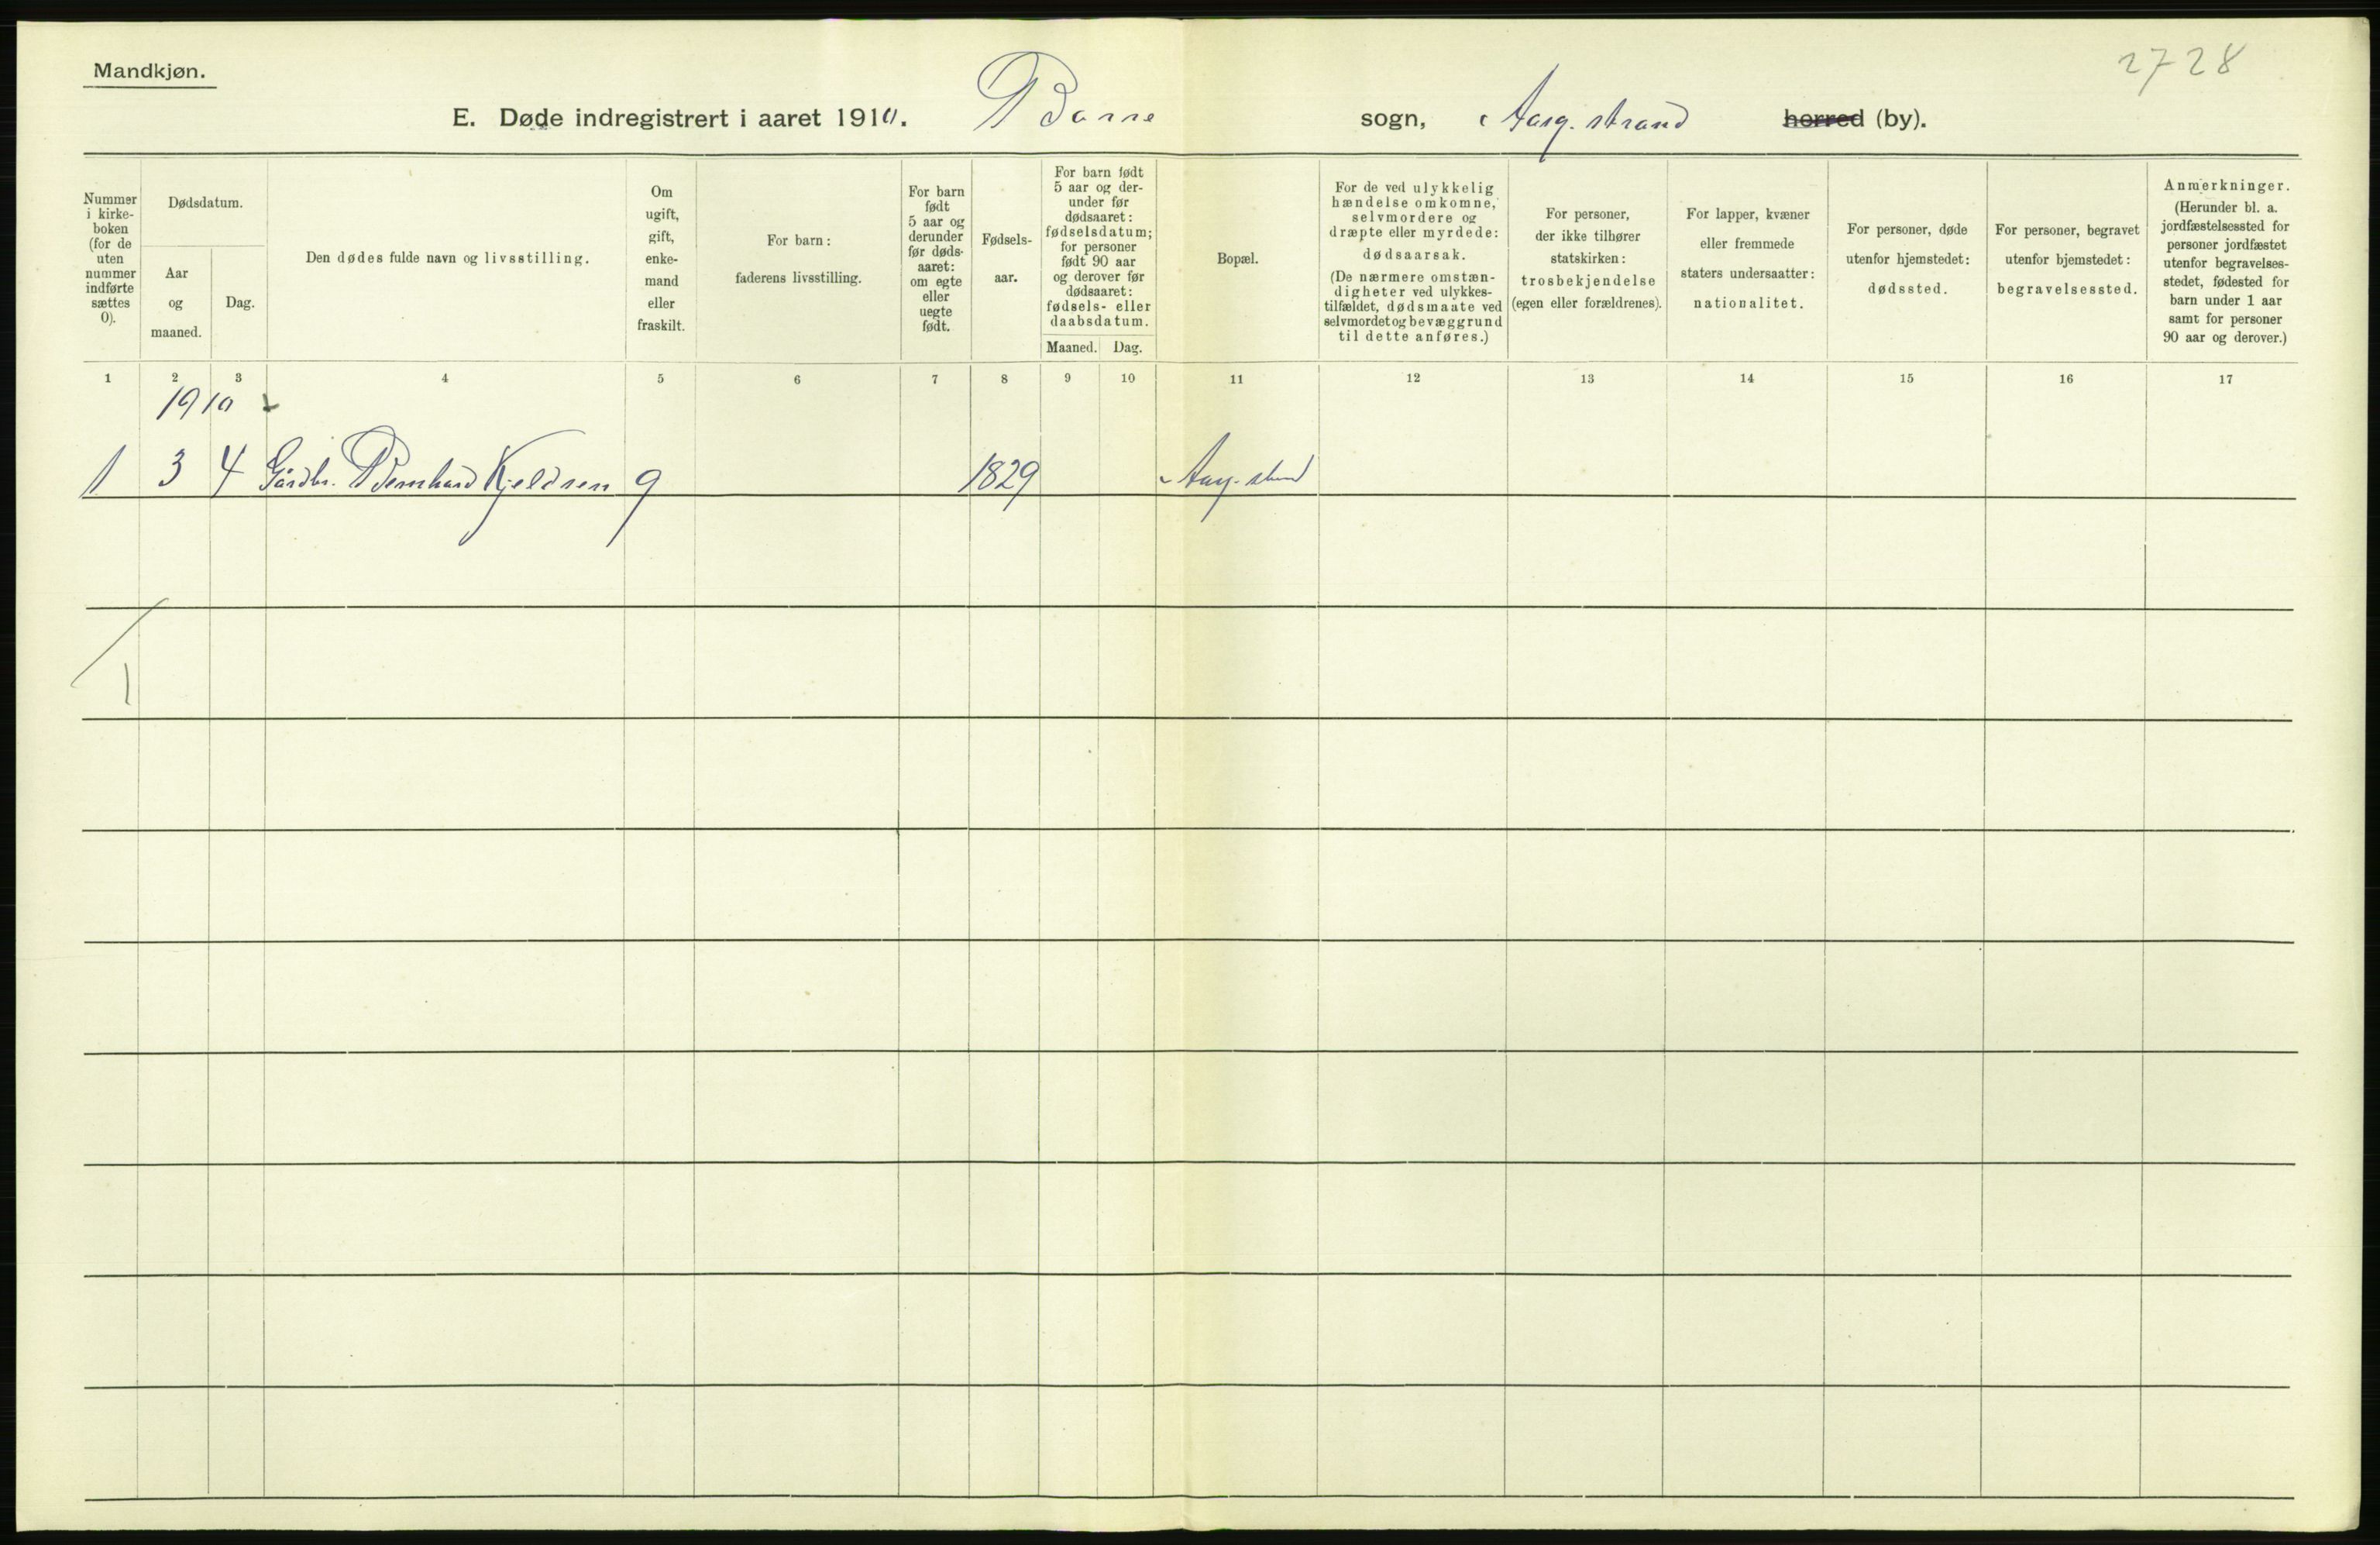 Mandkjøn.
2728
E. Døde indregistrert i aaret 1910. Borre sogn, Aasg. strand herred (by).
Nummer i kirke- boken (for de uten nummer indførte sættes 0).
Dødsdatum.
Aar og maaned.
Dag.
Den dødes fulde navn og livsstilling.
Om ugift, gift, enke- mand eller fraskilt.
For barn: faderens livsstilling.
For barn født 5 aar og derunder før døds- aaret: om egte eller uegte født.
Fødsels- aar.
For barn født 5 aar og der- under før dødsaaret: fødselsdatum; for personer født 90 aar og derover før dødsaaret: fødsels- eller daabsdatum.
Maaned. Dag.
Bopæl.
For de ved ulykkelig hændelse omkomne, selvmordere og dræpte eller myrdede: dødsaarsak. (De nærmere omstæn- digheter ved ulykkes- tilfældet, dødsmaate ved selvmordet og bevæggrund til dette anføres.)
For personer, der ikke tilhører statskirken: trosbekjendelse (egen eller forældrenes).
For lapper, kvæner eller fremmede staters undersaatter: nationalitet.
For personer, døde utenfor hjemstedet: dødssted.
For personer, begravet utenfor hjemstedet: begravelsessted.
Anmerkninger. (Herunder bl. a. jordfæstelsessted for personer jordfæstet utenfor begravelses- stedet, fødested for barn under 1 aar samt for personer 90 aar og derover.)
1 2 3 4 5 6 7 8 9 10 11 12 13 14 15 16 17
1910
1 3 4 Gårdbr. Bernhard Kjeldsen g 1829 Aasg. strand
1